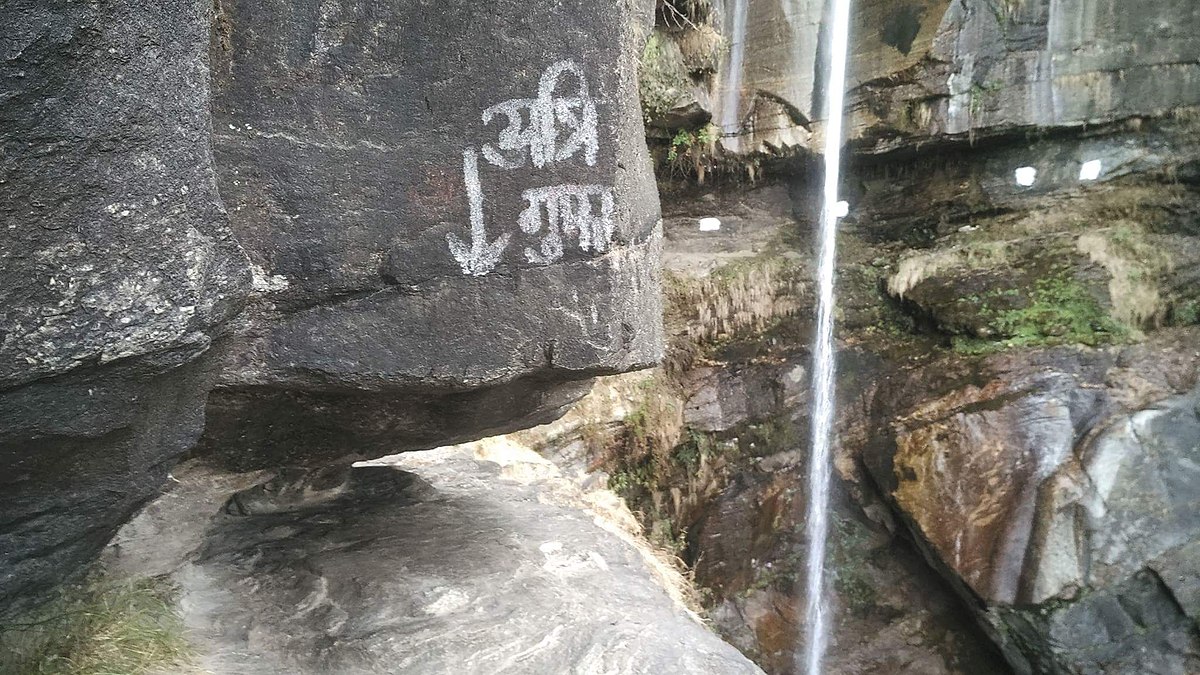 अत्रि
गुफा